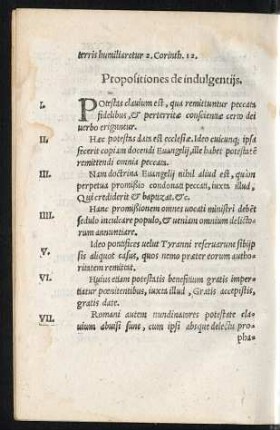 terris humiliaretur 2. Corinth. 12.
Propositiones de indulgentijs.
I. Potestas clauium est, qua remittuntur peccata
fidelibus, & perterritæ conscientiæ certo dei
uerbo eriguntur.
II. Hæc potestas data est ecclesiæ. Ideo cuicunq; ipsa
fecerit copiam docendi Euangelij, ille habet potestatẽ
remittendi omnia peccata.
III. Nam doctrina Euangelij nihil aliud est, quàm
perpetua promissio condonati peccati, iuxta illud,
Qui crediderit & baptizat. &c.
IIII. Hanc promissionem omnes uocati ministri debẽt
sedulo inculcare populo, & ueniam omnium delicto-
rum annuntiare.
V. Ideo pontifices uelut Tyranni referuarunt sibijp
sis aliquot casus, quos nemo præter eorum autho-
ritatem remittat.
VI. Huius etiam potestatis beneficium gratis imper-
tiatur pœnitentibus, iuxta illud, Gratis accepistis,
gratis date.
VII. Romani autem nundinatores potestate cla-
uium abusi sunt, cum ipsi absque delectu pro-
pha-